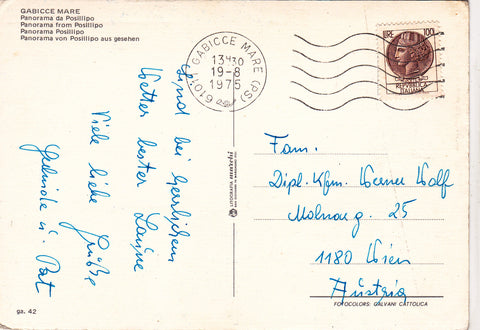 GABICCE MARE
Panorama da Posillipo
Panorama from Posillipo
Panorama Posillipo
Panorama von Posillipo aus gesehen
Sind bei herrlichem
Wetter bester Laune
Viele liebe Grüße
u. Pat
61011 GABICCE MARE (PS)
13H30
19-8
1975
LIRE 100
REPUBBLICA
ITALIANA
Fam.
Dipl. Kfm. Werner Wolf
Molnarg. 25
1180 Wien
Austria
FOTOCOLORS: GALVANI CATTOLICA
ga. 42